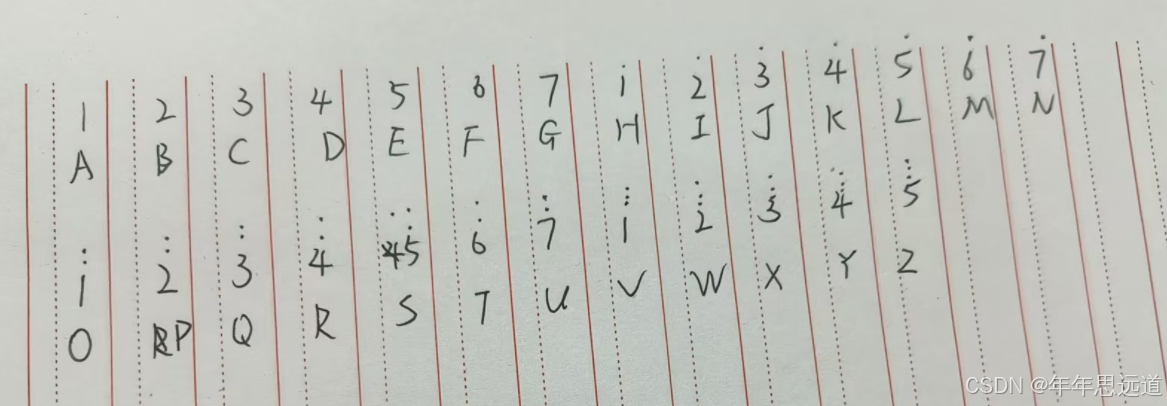 1 2 3 4 5 6 7 i̇ 2̇ 3̇ 4̇ 5̇ 6̇ 7̇
A B C D E F G H I J K L M N
1̈ 2̈ 3̈ 4̈ 5̈ 6̈ 7̈ 1⃛ 2⃛ 3⃛ 4⃛ 5⃛
O P Q R S T U V W X Y Z
CSDN @年年思远道